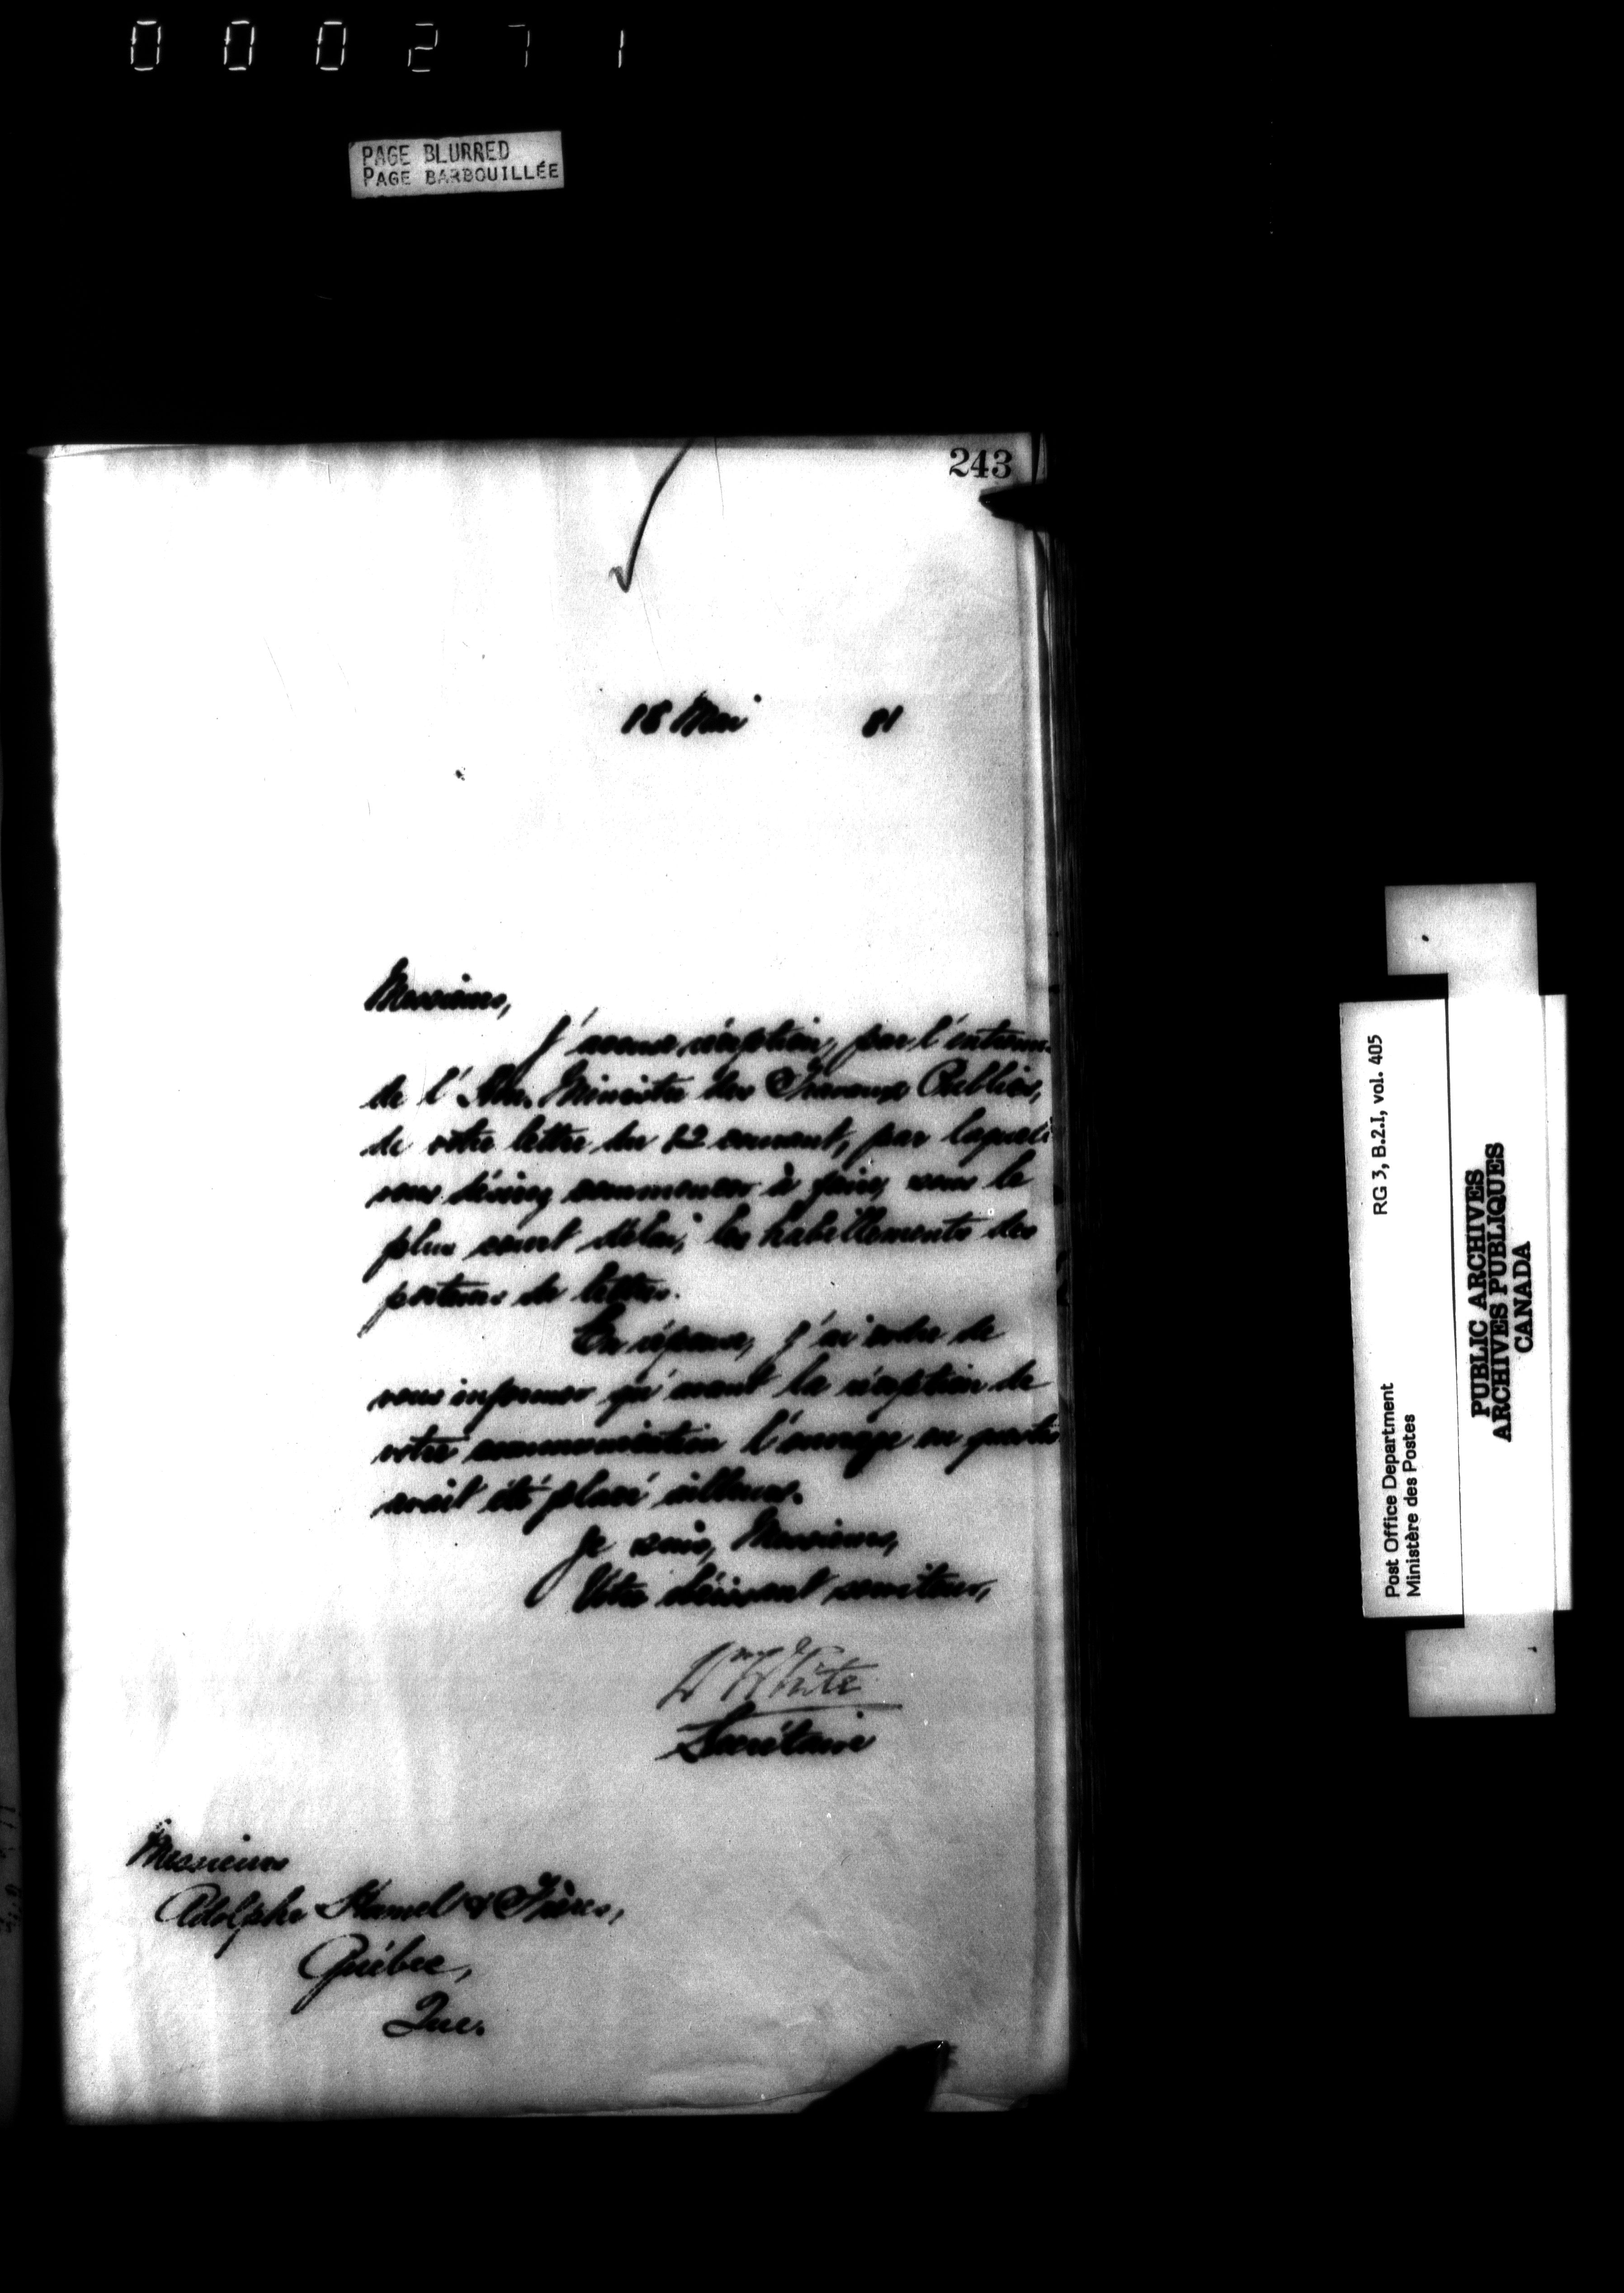 000271
PAGE BLURRED
PAGE BARBOUILLÉE
243
18 Mai 81
Messieurs,
J'accuse réception, par l'entrem
de l'Hon. Ministre des Travaux Publics,
de votre lettre du 12 courant, par laquelle
vous désirez commencer à faire, sous le
plus court délai, les habillements des
porteurs de lettres.
En réponse, j'ai ordre de
vous informer qu'avant la réception de
votre communication l'ouvrage en question
avait été placé ailleurs.
Je suis, Messieurs,
Votre obéissant serviteur,
Wm White
Secrétaire
Messieurs
Adolphe Hamel & Frères,
Québec,
Que.
Post Office Department RG 3, B.2.I, vol. 405
Ministère des Postes
PUBLIC ARCHIVES
ARCHIVES PUBLIQUES
CANADA